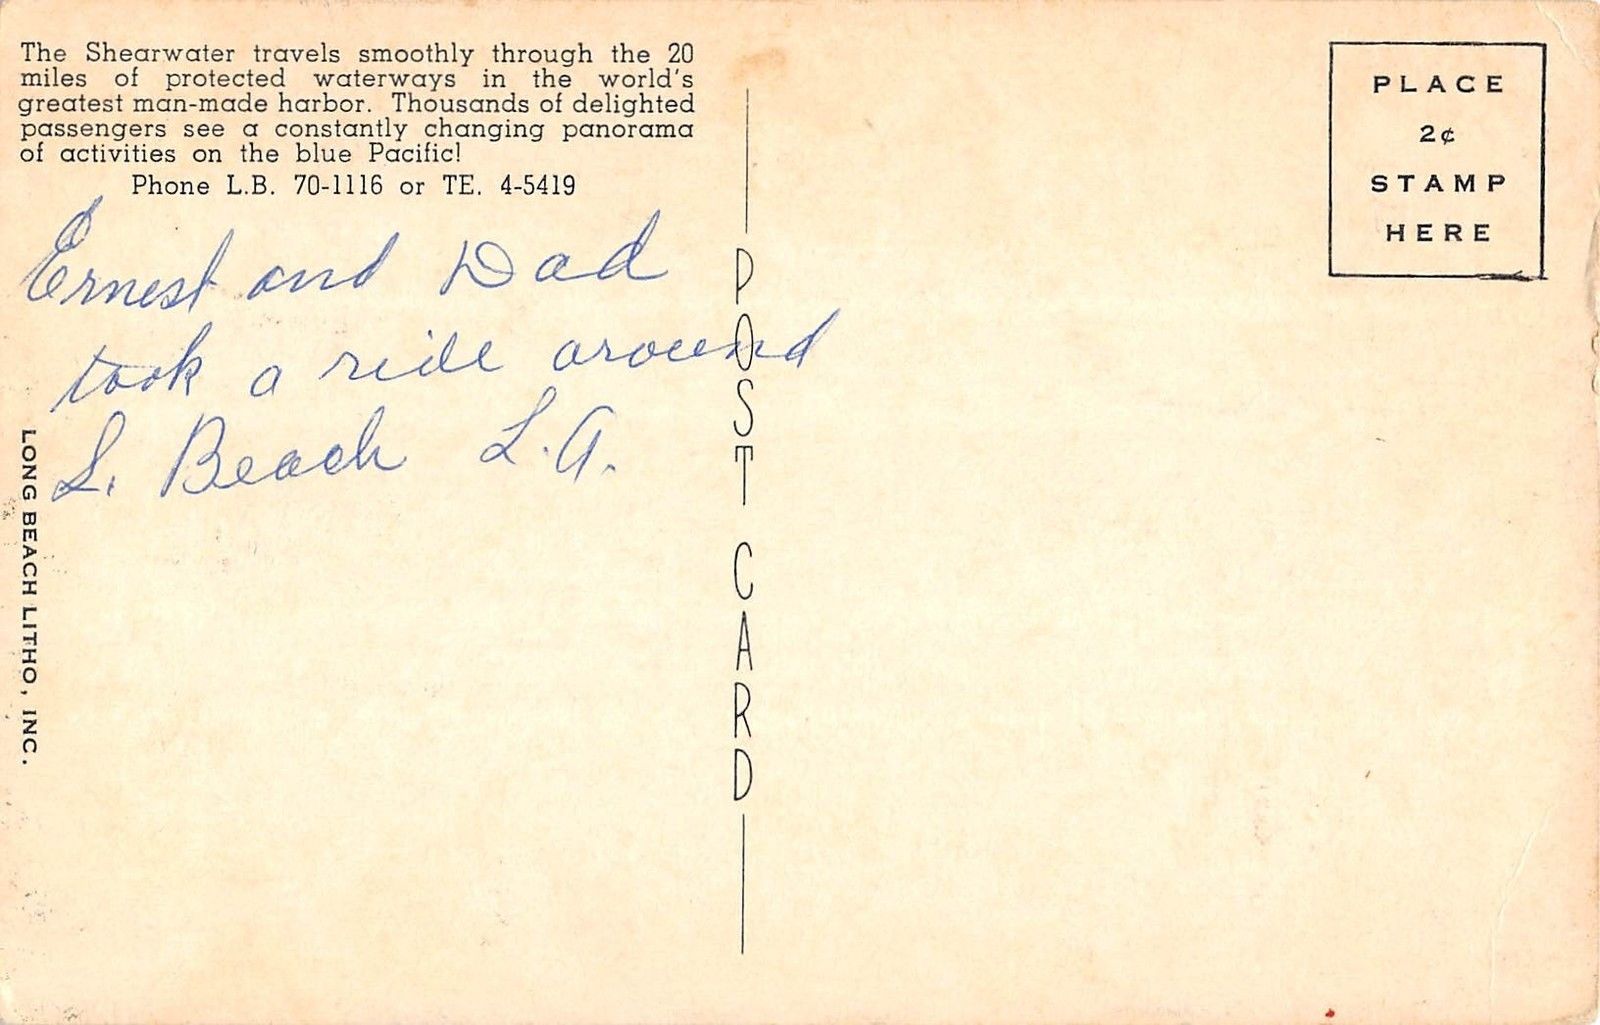 The Shearwater travels smoothly through the 20
miles of protected waterways in the world's
greatest man-made harbor. Thousands of delighted
passengers see a constantly changing panorama
of activities on the blue Pacific!
Phone L.B. 70-1116 or TE. 4-5419
Ernest and Dad
took a ride around
L. Beach L.A.
LONG BEACH LITHO, INC.
POST CARD
PLACE
2¢
STAMP
HERE